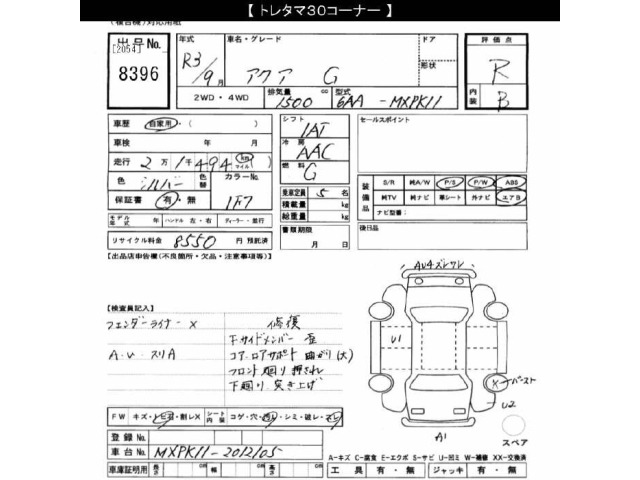 【 トレタマ30コーナー 】
出品No.
[2054]
8396
年式
R3/9月
車名・グレード
アクア G
ドア
形状
2WD・4WD
排気量
1500 cc
型式
6AA-MXPK11
評価点
R
内装
B
車歴 自家用・( )
車検 年 月
走行 2万1千494 km マイル
色 シルバー 色替 カラーNo. 1F7
保証書 有・無
モデル年式 年 ハンドル 左・右 ディーラー・並行
リサイクル料金 8550 円 預託済
シフト
1AT
冷房
AAC
燃料
G
乗車定員 5 名
積載量 kg
総重量 kg
書類期限
月 日
セールスポイント
装備品
S/R 純A/W P/S P/W ABS
純TV 純ナビ 革シート 外ナビ エアB
ナビ型番:
後日品
【出品店申告欄(不良箇所・欠品・注意事項等)】
【検査員記入】
フェンダーライナー X
A・U・スリA
修復
F・サイドメンバー 歪
コア・ロアサポート 曲がり(大)
フロント廻り 押され
下廻り 突き上げ
AU4ズレワレ
U1
X バースト
U2
A1
スペア
FW キズ・トビ石・割レX シート内装 コゲ・穴・スレ・シミ・破レ・
登録No.
車台No. MXPK11-2012105
車庫証明用 長さ cm 幅 cm 高さ cm
A-キズ C-腐食 E-エクボ S-サビ U-凹ミ W-補修 XX-交換済
工具 有・無 ジャッキ 有・無